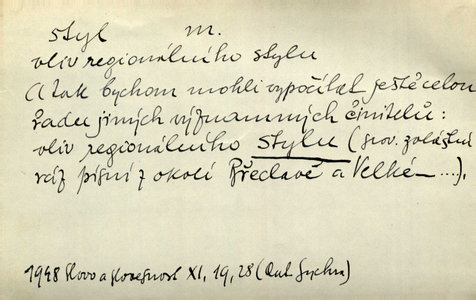 styl m.
vliv regionálního stylu
(A tak bychom mohli vypočítat ještě celou
řadu jiných významných činitelů:
vliv regionálního stylu (srov. zvláštní
ráz písní z okolí Břeclavě a Velké ...).
1948 Slovo a slovesnost XI, 19, 28 (Ant. Sychra)